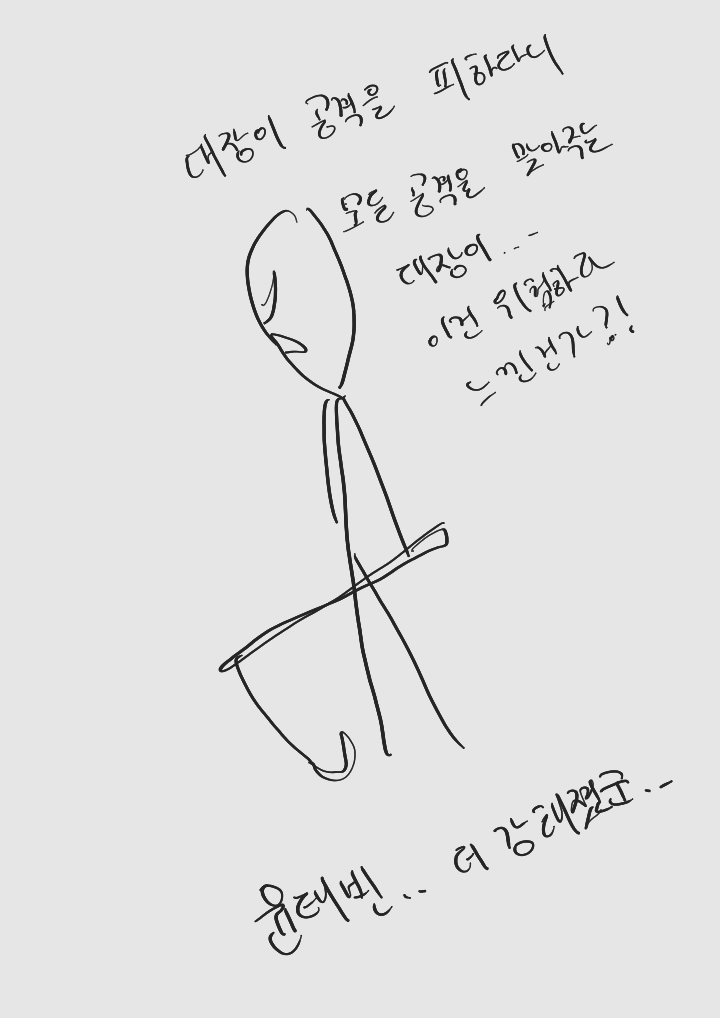 대장이 공격을 피하라니
모든 공격을 맞아주는
대장이...
이건 위험하다
느낀건가?!
윤태빈... 더 강해졌군...